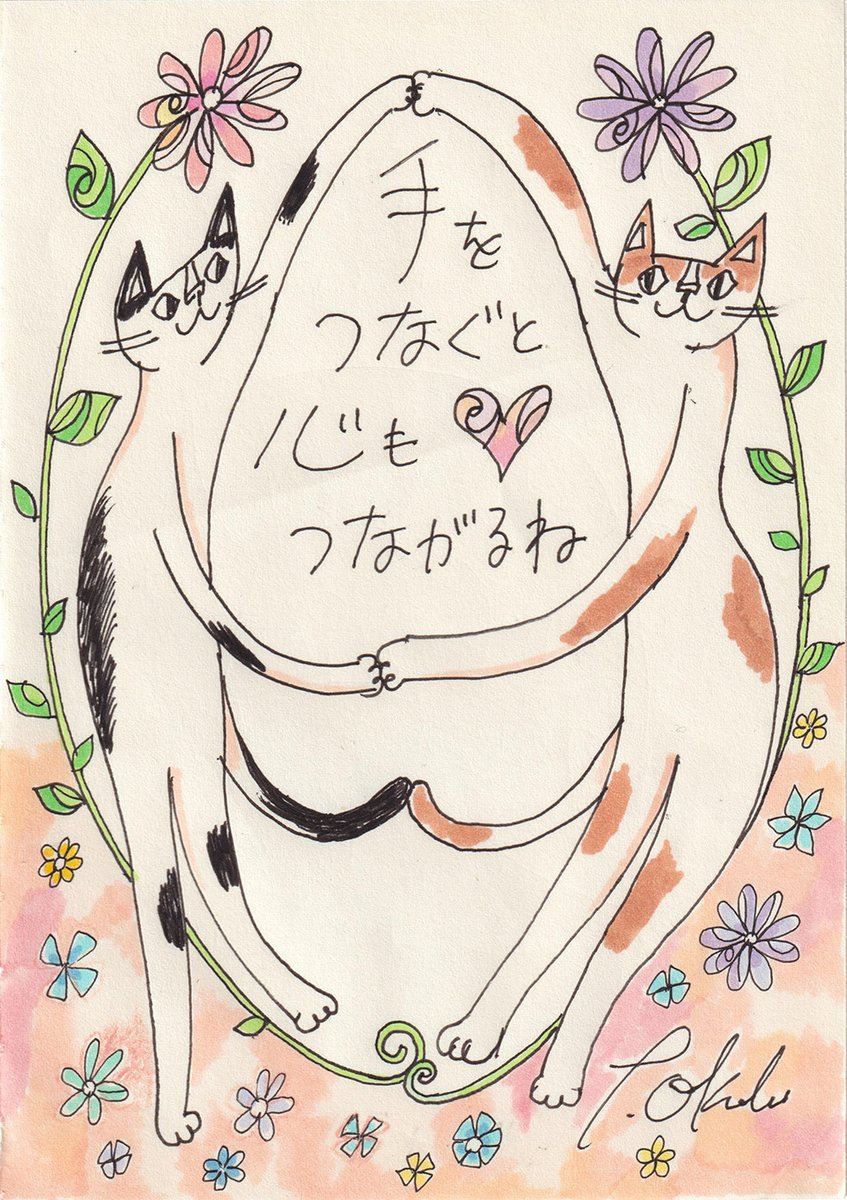 手を
つなぐと
心も
つながるね